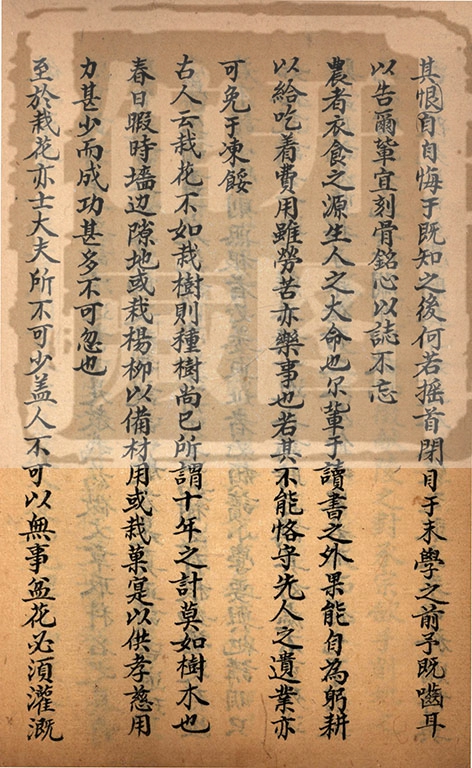 其恨自自悔于既知之後何若摇首閉目于未學之前予既嚙耳
以告爾軰宜刻骨銘心以誌不忘
農者衣食之源生人之大命也尔軰于讀書之外果能自為躬耕
以給吃着費用雖勞苦亦樂事也若其不能恪守先人之遺業亦
可免于凍餒
古人云栽花不如栽樹則種樹尚已所謂十年之計莫如樹木也
春日暇時墻边隙地或栽楊柳以備材用或栽菓寔以供孝慈用
力甚少而成功甚多不可忽也
至於栽花亦士大夫所不可少盖人不可以無事盆花必須灌溉